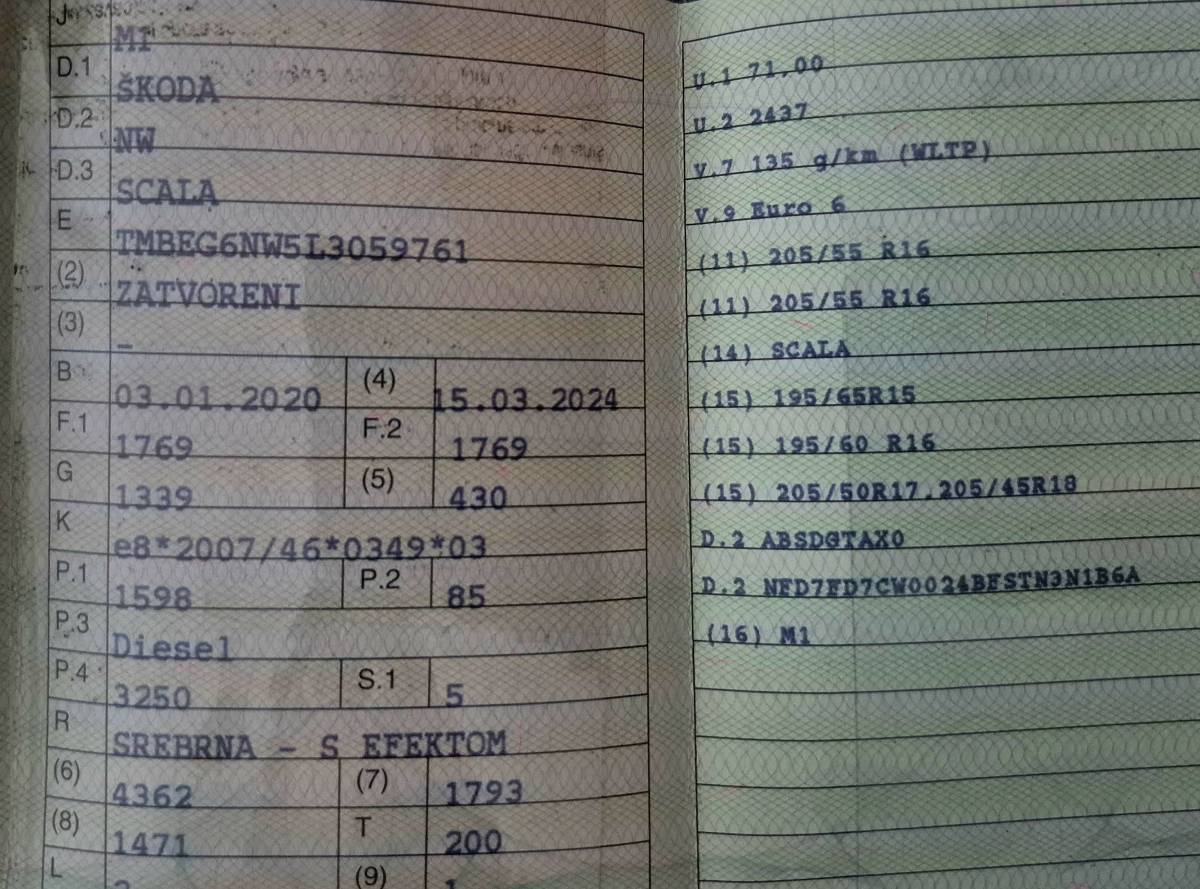 J
M1
D.1 ŠKODA
D.2 NW
D.3 SCALA
E TMBEG6NW5L3059761
(2) ZATVORENI
(3) –
B 03.01.2020 (4) 15.03.2024
F.1 1769 F.2 1769
G 1339 (5) 430
K e8*2007/46*0349*03
P.1 1598 P.2 85
P.3 Diesel
P.4 3250 S.1 5
R SREBRNA - S EFEKTOM
(6) 4362 (7) 1793
(8) 1471 T 200
L (9)
U.1 71,00
U.2 2437
V.7 135 g/km (WLTP)
V.9 Euro 6
(11) 205/55 R16
(11) 205/55 R16
(14) SCALA
(15) 195/65R15
(15) 195/60 R16
(15) 205/50R17,205/45R18
D.2 ABSDGTAX0
D.2 NFD7FD7CW0024BFSTN3N1B6A
(16) M1